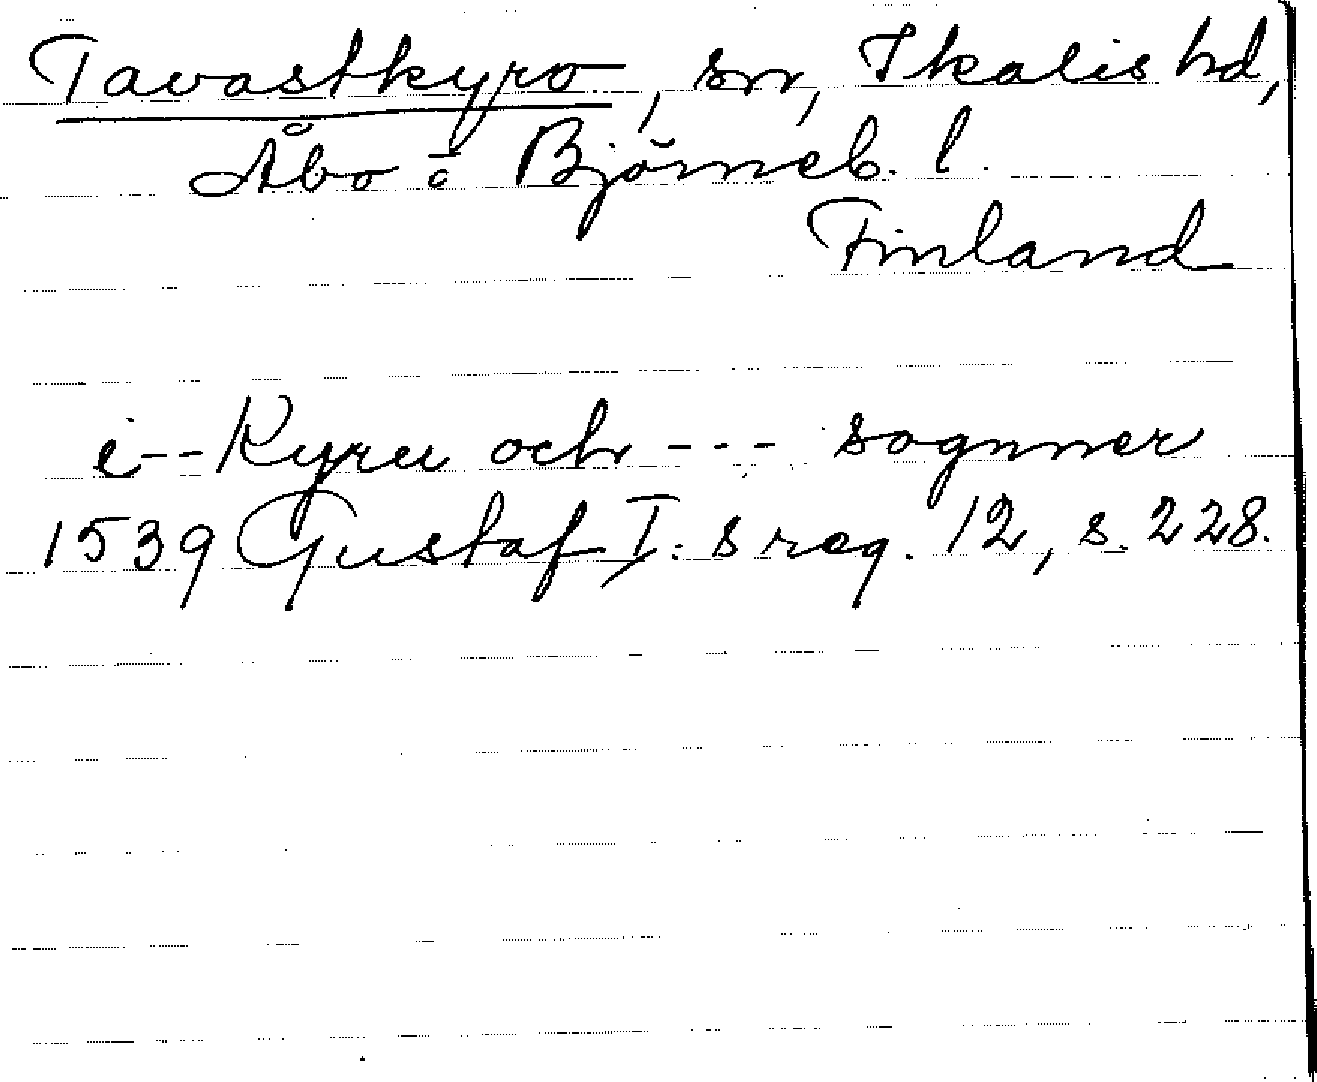 Tavastkyro, sn, Ikalis hd,
Åbo o Björneb. l.
Finland
i -- Kyru och --- sognner
1539 Gustaf I:s reg. 12, s. 228.